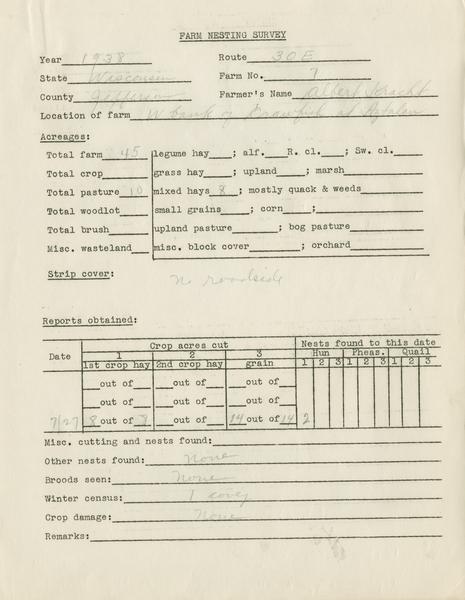 FARM NESTING SURVEY
Year 1938 Route 30E
State Wisconsin Farm No. 7
County Jefferson Farmer's Name Albert Kracht
Location of farm W bank of Crawfish at Aztalan
Acreages:
Total farm 45 legume hay ; alf. R. cl. ; Sw. cl.
Total crop grass hay ; upland ; marsh
Total pasture 10 mixed hays 8 ; mostly quack & weeds
Total woodlot small grains ; corn ;
Total brush upland pasture ; bog pasture
Misc. wasteland misc. block cover ; orchard
Strip cover:
No roadside
Reports obtained:
Crop acres cut Nests found to this date
Date 1 2 3 Hun Pheas. Quail
1st crop hay 2nd crop hay grain 1 2 3 1 2 3 1 2 3
out of out of out of
out of out of out of
7/27 8 out of 8 out of 14 out of 14 2
Misc. cutting and nests found:
Other nests found: None
Broods seen: None
Winter census: 1 covey
Crop damage: None
Remarks: